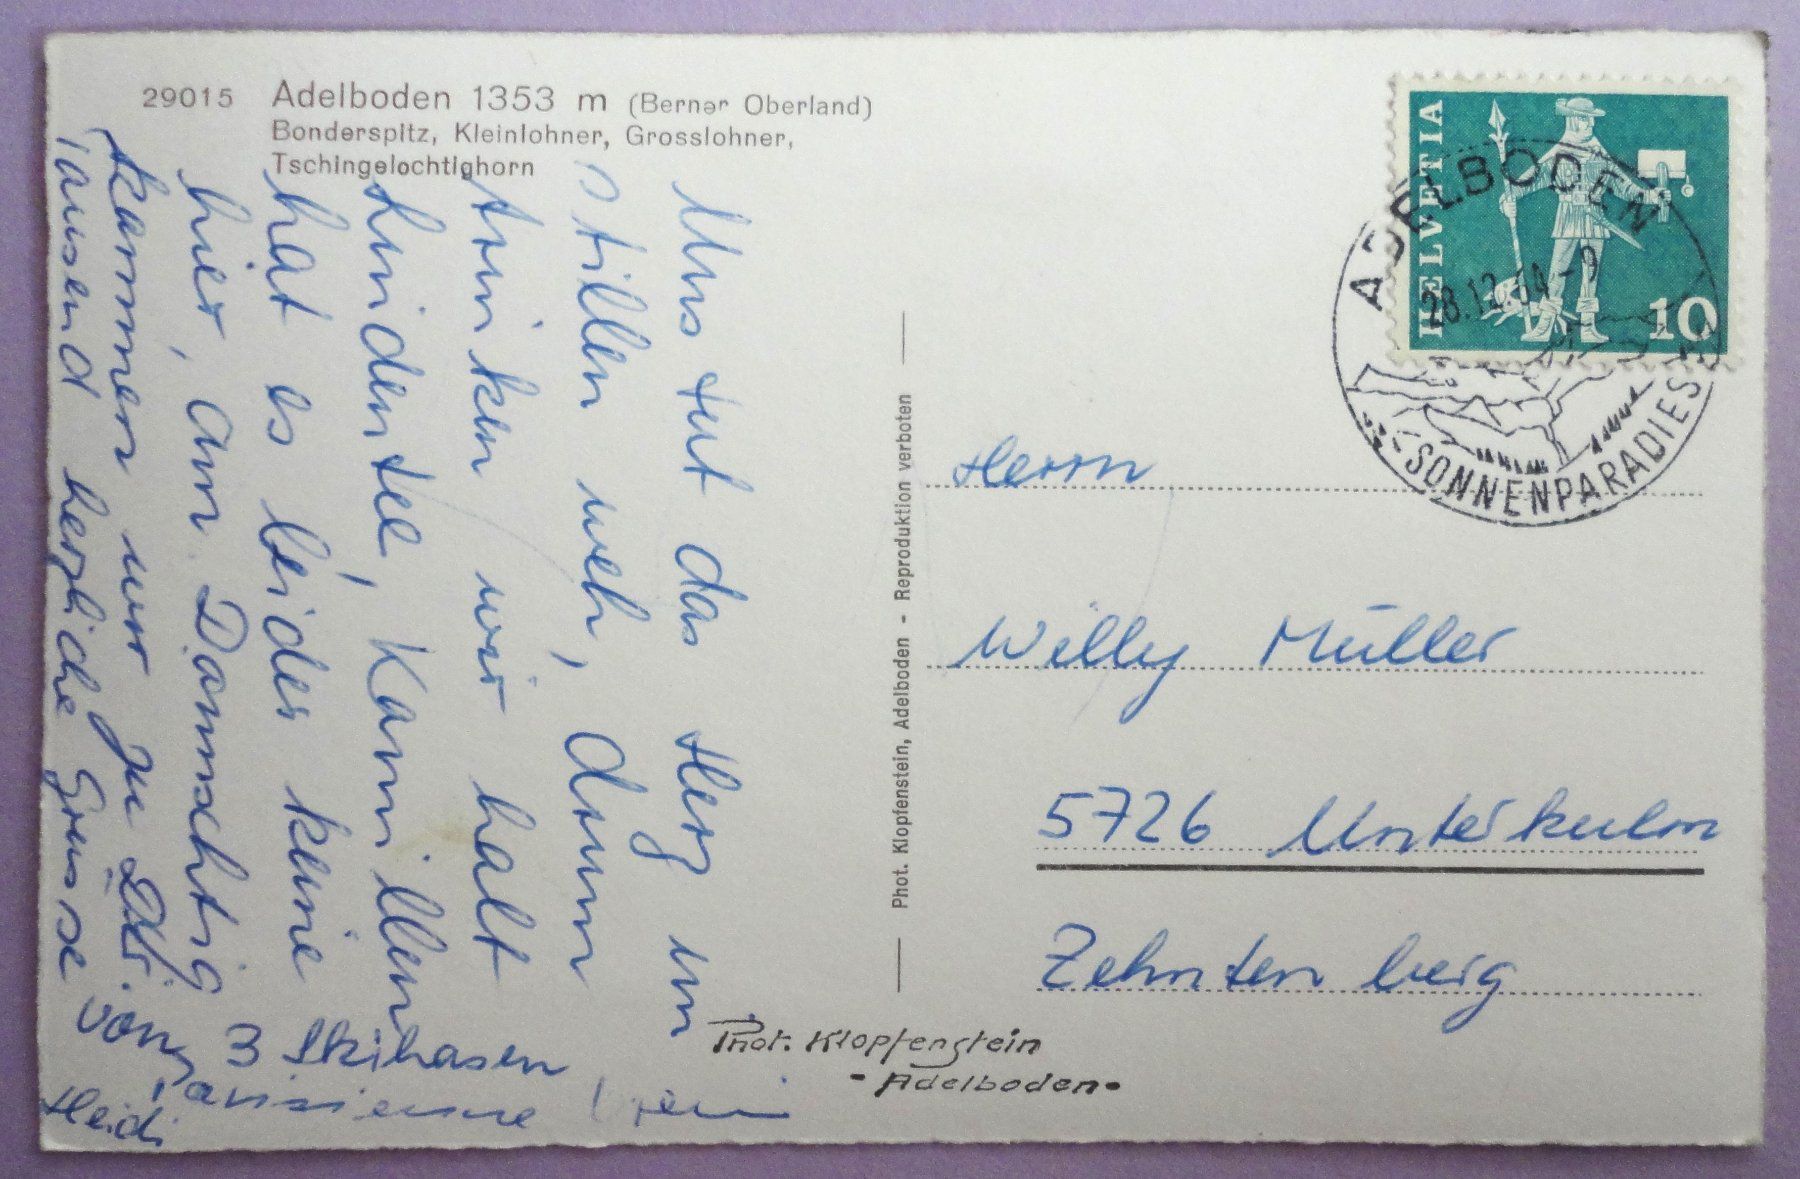 29015 Adelboden 1353 m (Berner Oberland)
Bonderspitz, Kleinlohner, Grosslohner,
Tschingelochtighorn
Uns tut das Herz im
stillen weh, drum
trinken wir halt
Lindentee, Kamillen
hat es leider keine
hier, am Damschtig
kommen wir zu Dir.
Tausend herzliche Grüsse
von
3 Skihasen
Heidi
Phot. Klopfenstein, Adelboden - Reproduktion verboten
Phot. Klopfenstein
- Adelboden -
HELVETIA
10
ADELBODEN
28.12.64-9
SONNENPARADIES
Herrn
Willy Müller
5726 Unterkulm
Zehntenberg